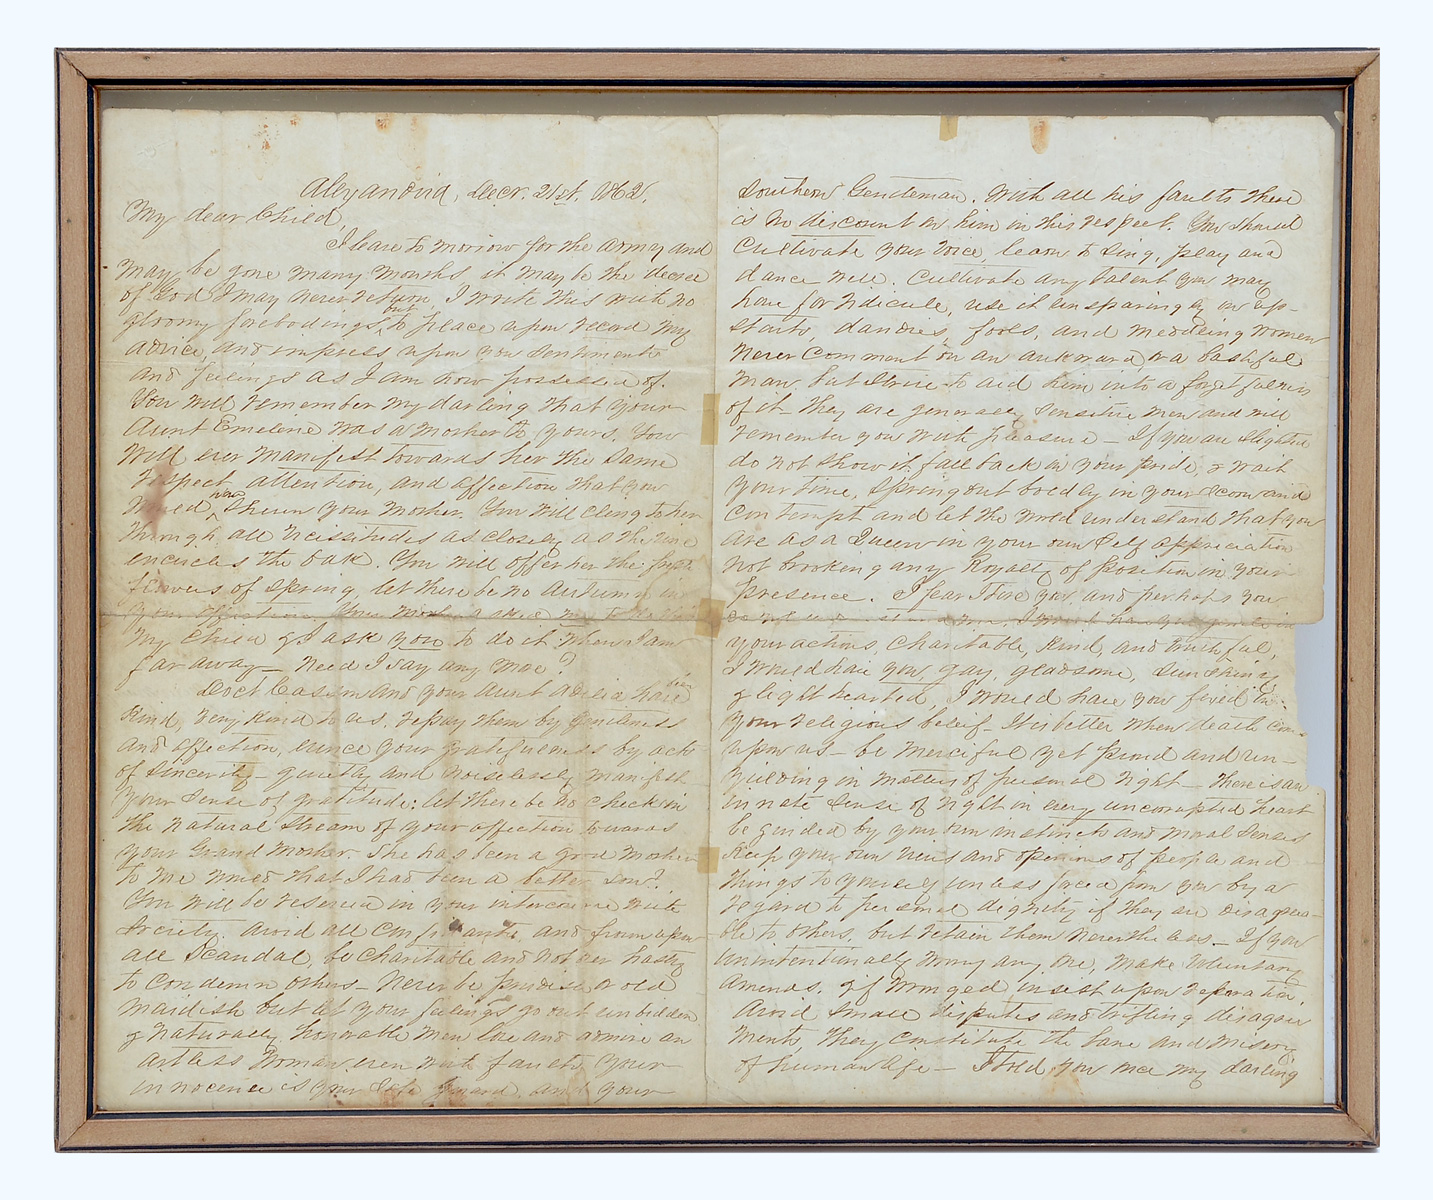 Alexandria, Decr. 21st. 1862.
My dear Child,
I leave to morrow for the army and
may be gone many months, it may be the decree
of God I may never return, I write this with no
gloomy forebodings, but to place upon record my
advice, and impress upon you sentiments
and feelings as I am now possessed of.
You will remember my darling that your
Aunt Emelene was a mother to yours. You
will ever manifest towards her the same
respect, attention, and affection that you
would, have shewn your mother. You will cling to her
through all vicissitudes as closely as the vine
encircles the oak. You will offer her the first
flowers of Spring, let there be no Autumn in
your affection. Your mother asked me to do this
my child & I ask you to do it when I am
far away— Need I say any more?
Doct Casson and your Aunt Adelia have been
kind, very kind to us, repay them by gentleness
and affection, evince your gratefulness by acts
of sincerity— quietly and noiselessly manifest
your sense of gratitude: let there be no check in
the natural stream of your affection towards
your Grand Mother. She has been a good Mother
to me would that I had been a better son?.
You will be reserved in your intercourse with
society. avoid all confidants, and frown upon
all Scandal, be charitable and not ever hasty
to condemn others— Never be prudish or old
maidish but let your feelings go out unbidden
& naturally, honorable men love and admire an
artless woman even with faults, your
innocence is your safe guard, and your
Southern Gentleman. With all his faults there
is no discount on him in this respect. You should
cultivate your voice, learn to sing, play and
dance well. Cultivate any talent you may
have for ridicule, use it unsparingly on up-
starts, dandies, fools, and meddling women
Never comment on an awkward or a bashful
man, but strive to aid him into a forgetfulness
of it— they are generally sensitive men and will
remember you with pleasure— If you are slighted
do not show it, fall back in your pride, & wait
your time, spring out boldly in your scorn and
contempt and let the world understand that you
are as a Queen in your own self appreciation
not brooking any Royalty of position in your
presence. I fear I tire you and perhaps you
do not understand me, I would have you gentle in
your actions, charitable, kind, and truthful,
I would have you, gay, gladsome, sunshiny
& light hearted, I would have you fixed in
your religious belief— It is better when death comes
upon us— be merciful yet proud and un-
yielding in matters of personal right— there is an
innate sense of right in every uncorrupted heart
be guided by your own instincts and moral senses
Keep your own views and opinions of people and
things to yourself unless forced from you by a
regard to personal dignity if they are disagreea-
ble to others, but retain them nevertheless— If you
unintentionally wrong any one, make voluntary
amends. If wronged insist upon reparation.
Avoid small disputes and trifling disagree
ments, they constitute the bane and misery
of human life— I told you once my darling